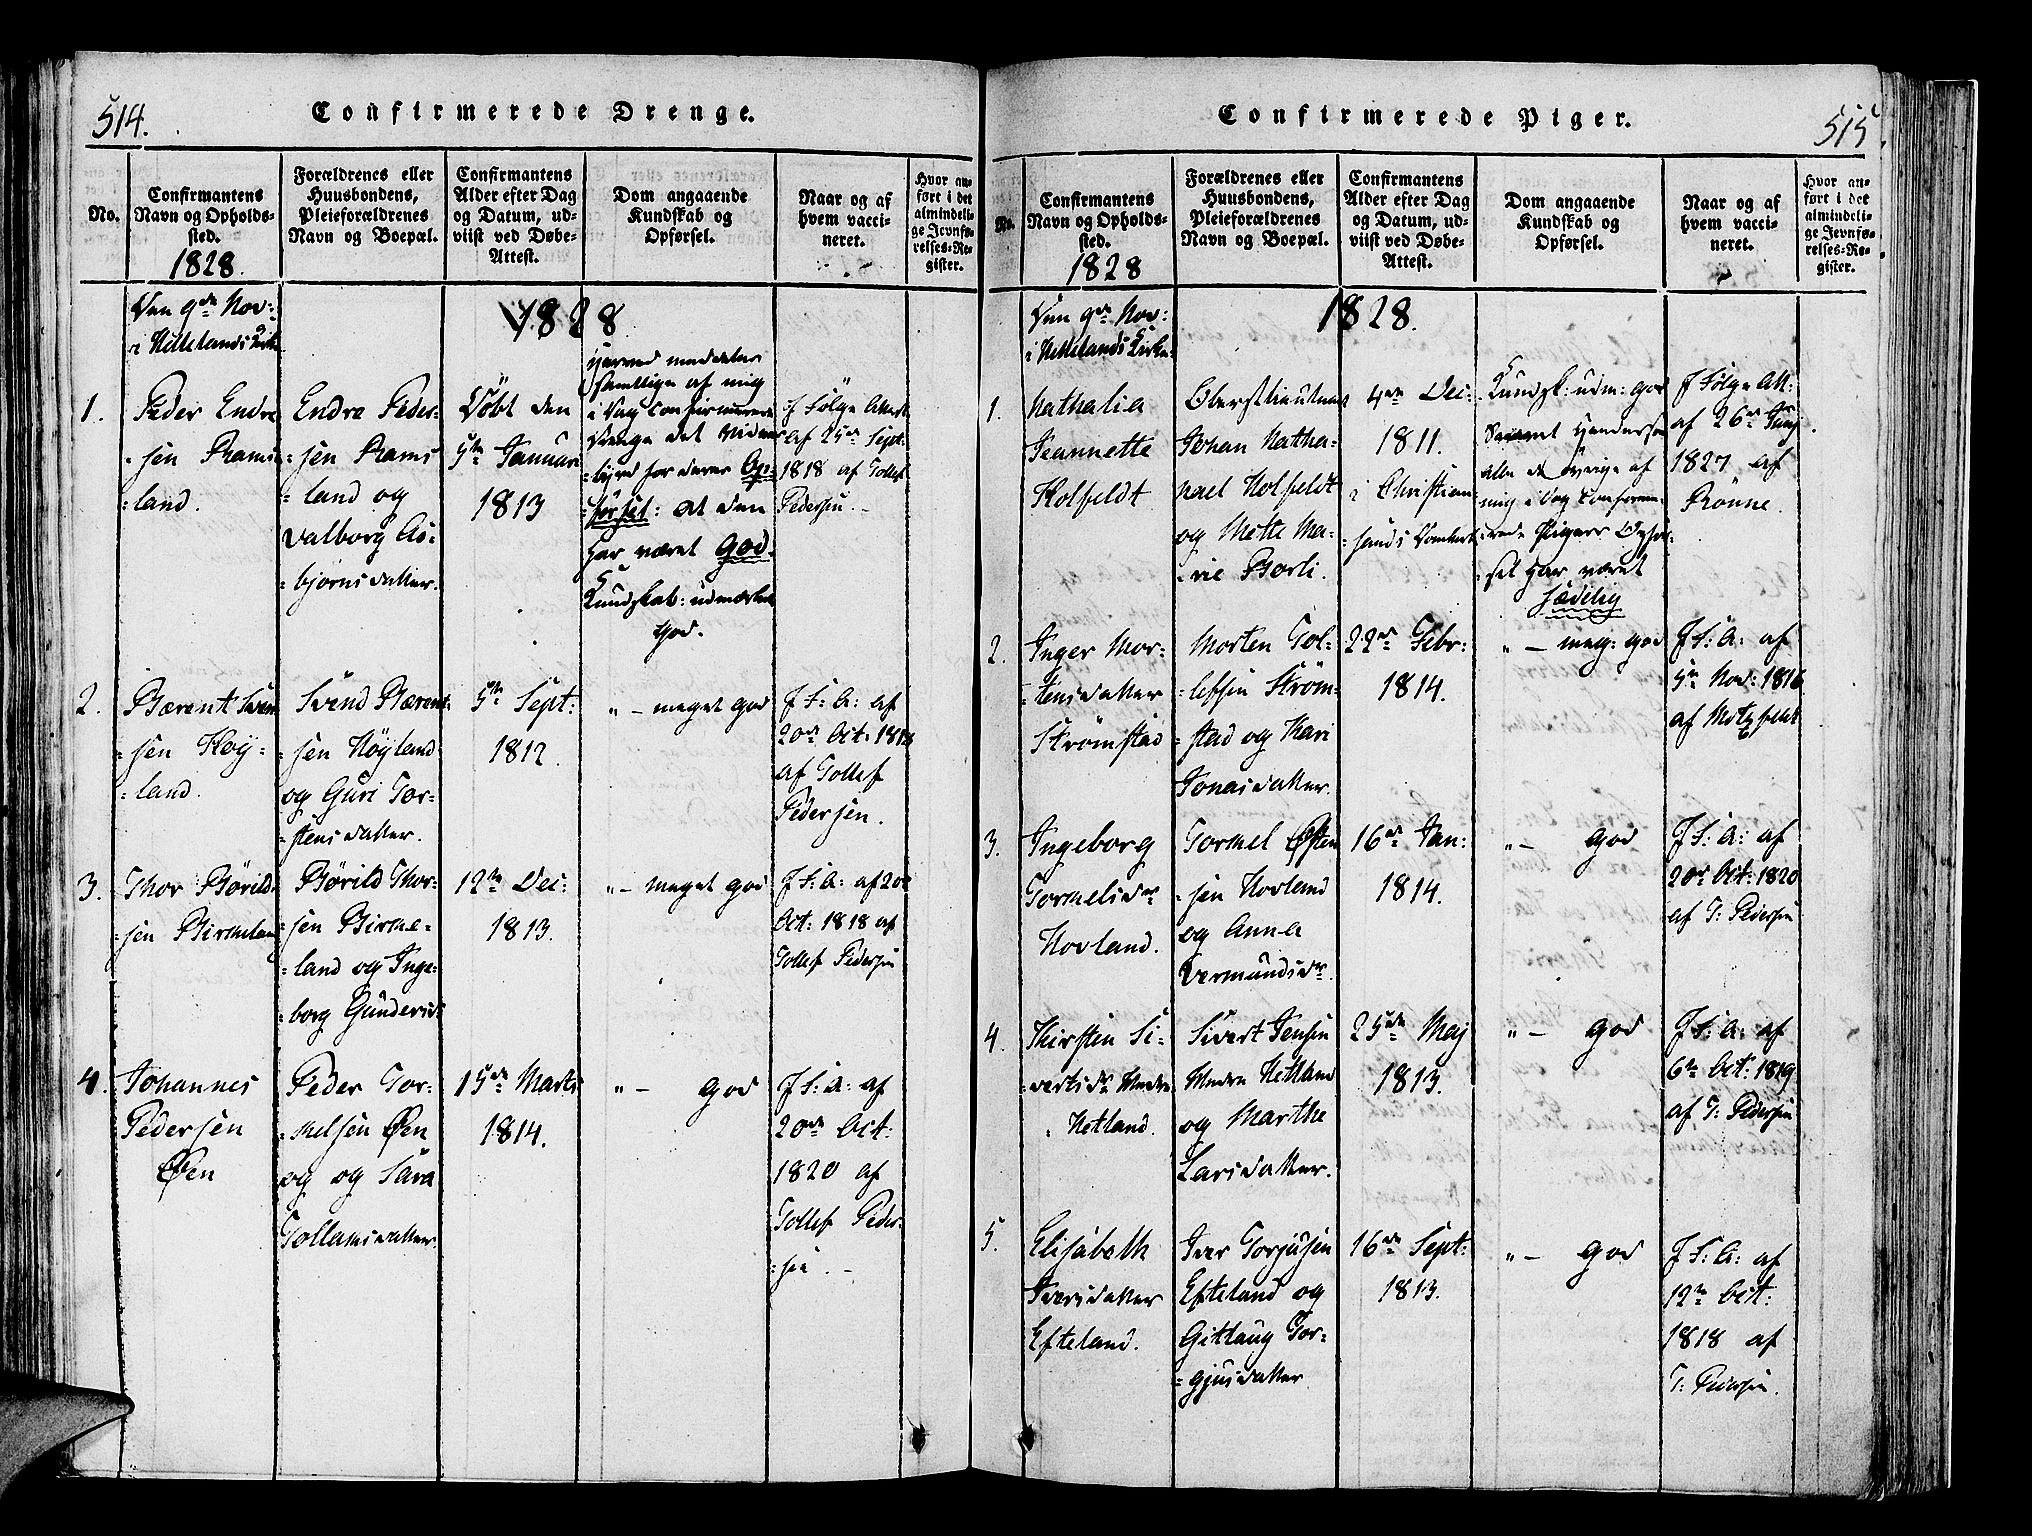 514.
Confirmerede Drenge.
No.
Confirmantens
Navn og Opholds-
sted.
1828.
Forældrenes eller
Huusbondens,
Pleieforældrenes
Navn og Boepæl.
Confirmantens
Alder efter Dag
og Datum, ud-
viist ved Døbe-
Attest.
Dom angaaende
Kundskab og
Opførsel.
Naar og af
hvem vacci-
neret.
Hvor an-
ført i det
almindeli-
ge Jevnfø-
relses-Re-
gister.
Den 9de Nov:
i Hellelands Kirke
1828
1.
Peder Endre
-sen Rams-
-land.
Endre Peder-
-sen Rams
-land og
Valborg As-
-bjørnsdatter.
Døbt den
5te Januari
1813
samtlige af mig
i Dag confirmerede
Drenge det Vidnes
-byrd for deres Op-
-førsel: at den
har været God.
Kundskab: udmærket
God.
J Følge Attest
af 25de Sept:
1818 af Tollef
Pedersen.
2.
Bærent Sven
-sen Høy-
-land.
Svend Bærent-
-sen Höyland
og Guri Tor-
-stensdatter.
5te Sept:
1812.
" - meget god
J F: A: af
20de Oct: 1818
af Tollef
Pedersen.
3.
Thor Börild-
-sen Birkeland
Börild Thor-
-sen Birke-
-land og Inge-
-borg Gundersd:
12te Dec:
1813.
" - meget god
J F: A: af 20de
Oct: 1818 af
Tollef Pedersen
4.
Johannes
Pedersen
Øen
Peder Tor-
-kelsen Øen
og og Sara
Tollamsdatter.
15de Marts
1814.
" - god
J F: A: af
20de Oct:
1820 af
Tollef Peder-
-sen.
515
Confirmerede Piger.
No.
Confirmantens
Navn og Opholds-
sted.
1828
Forældrenes eller
Huusbondens,
Pleieforældrenes
Navn og Boepæl.
Confirmantens
Alder efter Dag
og Datum, ud-
viist ved Døbe-
Attest.
Dom angaaende
Kundskab og
Opførsel.
Naar og af
hvem vacci-
neret.
Hvor an-
ført i det
almindeli-
ge Jevnfø-
relses-Re-
gister.
Den 9de Nov:
i Hellelands Kirke
1828.
1.
Nathalia
Jeannette
Holfeldt
Oberstlieutnant
Johan Natha-
-nael Holfeldt
og Mette Ma-
-rie Borli.
4de Dec:
1811.
i Christian-
-sands Domkirke
Kundsk: udm: god
alle de øvrige af
mig i Dag confirme-
-rede Pigers Opfør-
-sel har været
sædelig
J Følge Att:
af 26de Junj
1827 af
Rönne.
2.
Inger Mor-
-tensdatter
Strömstad
Morten Tol-
-lefsen Ström-
-stad og Kari
Jonasdatter.
22de Febr:
1814.
" - meg: god
J F: A: af
5te Nov: 1816
af Motzfeldt
3.
Ingeborg
Tormelsdr
Hovland.
Tormel Østen
-sen Hovland
og Anna
Vermundsdr.
16de Jan:
1814.
" - god
J F: A: af
20de Oct: 1820
af T: Pedersen
4.
Kirsten Si-
-vertsdr Nedre
Hetland.
Sivert Jensen
Nedre Hetland
og Marthe
Larsdatter.
25de Maj
1813.
" - god
J F: A: af
6te Oct: 1819
af T: Pedersen
5.
Elisabeth
Iversdatter
Efteland.
Iver Torjusen
Efteland og
Gitlaug Tor-
-gjusdatter
16de Sept:
1813.
" - god
J F: A: af
12te Oct:
1818 af
T: Pedersen.